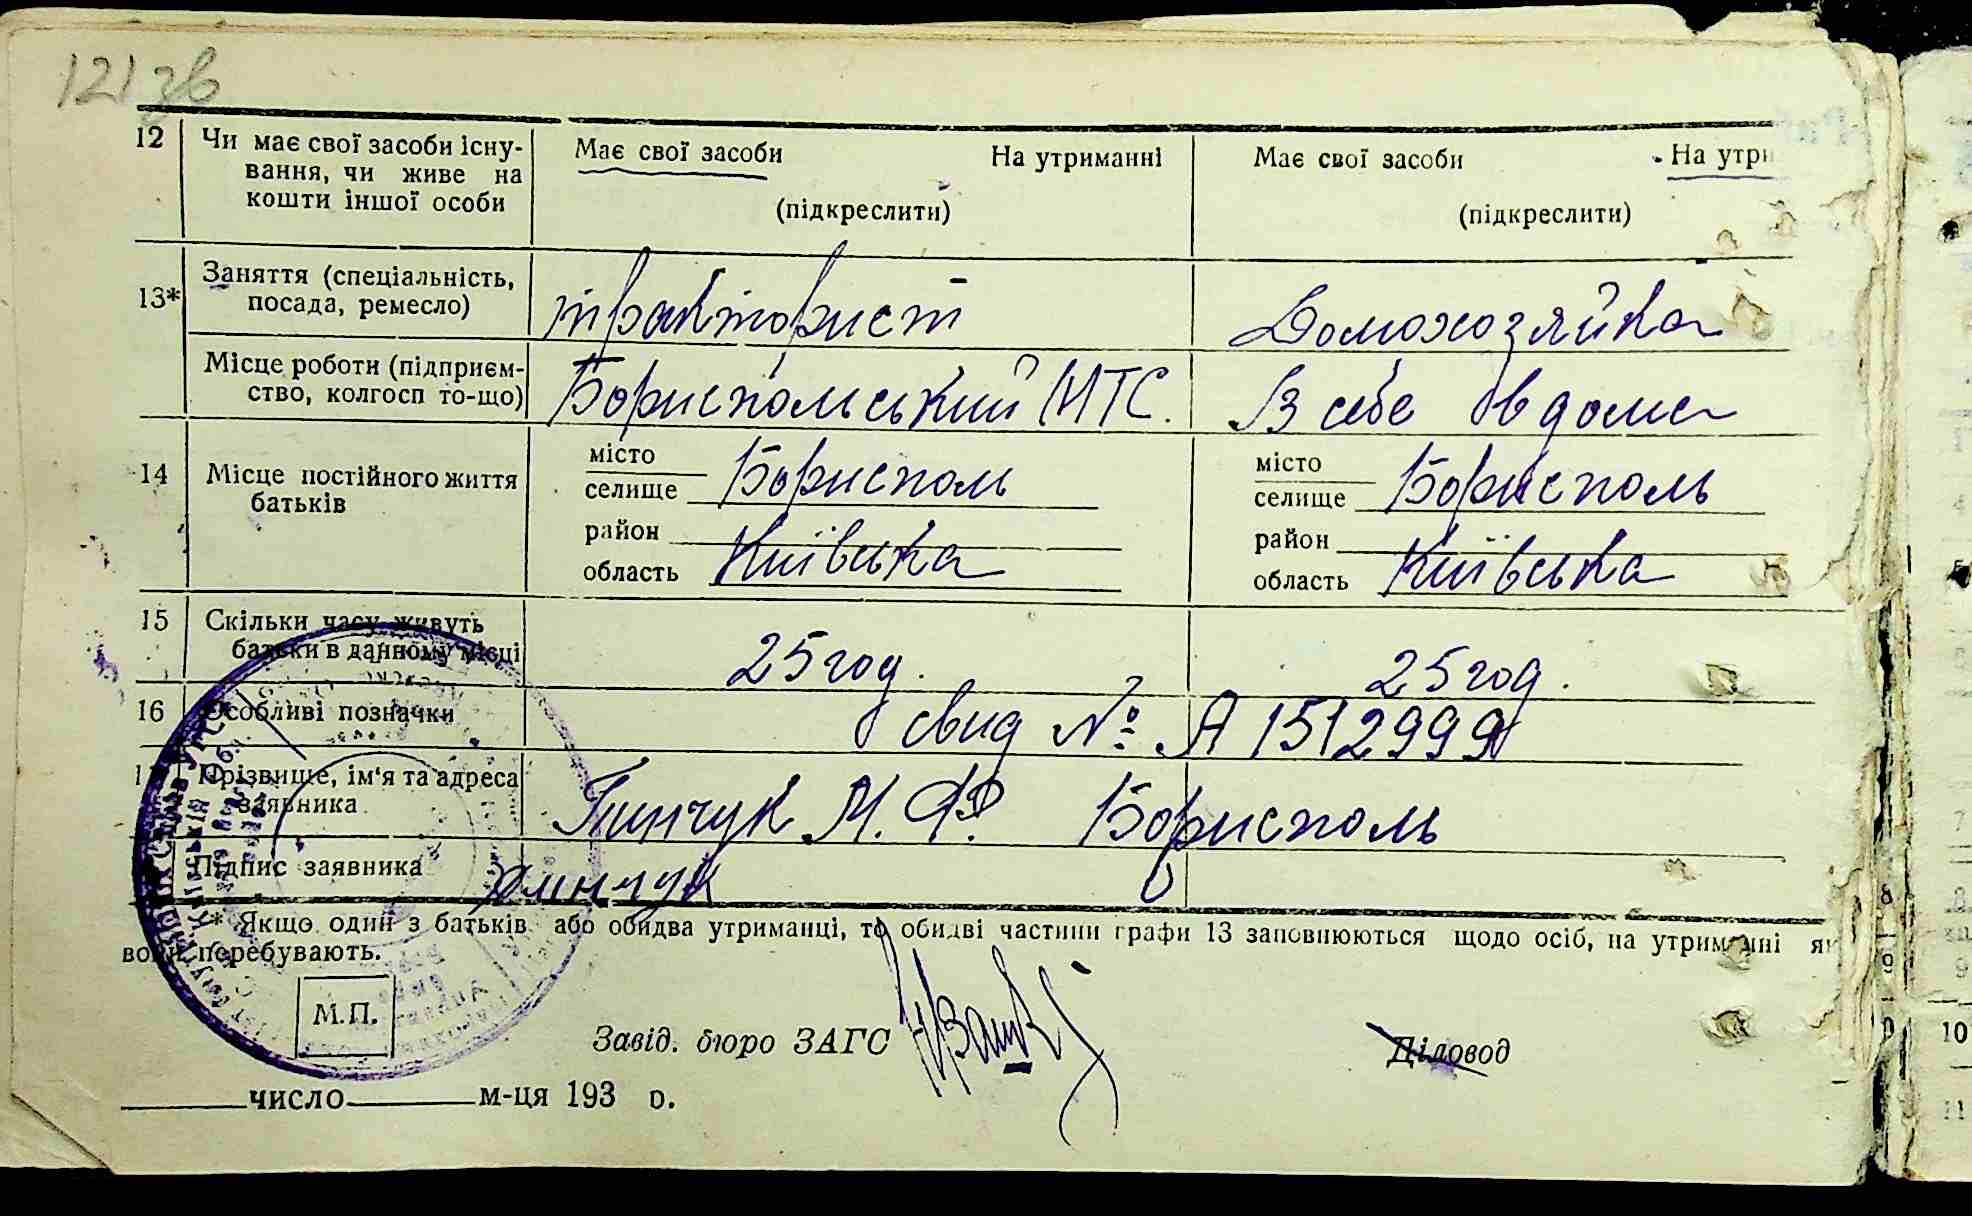 121зв
12 Чи має свої засоби існу- Має свої засоби На утриманні Має свої засоби На утри
вання, чи живе на
кошти іншої особи (підкреслити) (підкреслити)
13* Заняття (спеціальність, тракторист Домохозяйка
посада, ремесло)
Місце роботи (підприєм- Бориспольський МТС. В себе вдома
ство, колгосп то-що)
14 Місце постійного життя місто Бориспол​ь місто Борисполь
батьків селище селище
район район
область Київська область Київська
15 Скільки часу живуть 25 год. 25 год.
батьки в данному місці
16 Особливі позначки свид № А 1512999
17 Прізвище, ім'я та адреса М. Ф. Борисполь
заявника
Підпис заявника
* Якщо один з батьків або обидва утриманці, то обидві частини графи 13 заповнюються щодо осіб, на утриманні як
вони перебувають.
М.П.
Завід. бюро ЗАГС Діловод
число м-ця 193 р.
10
11